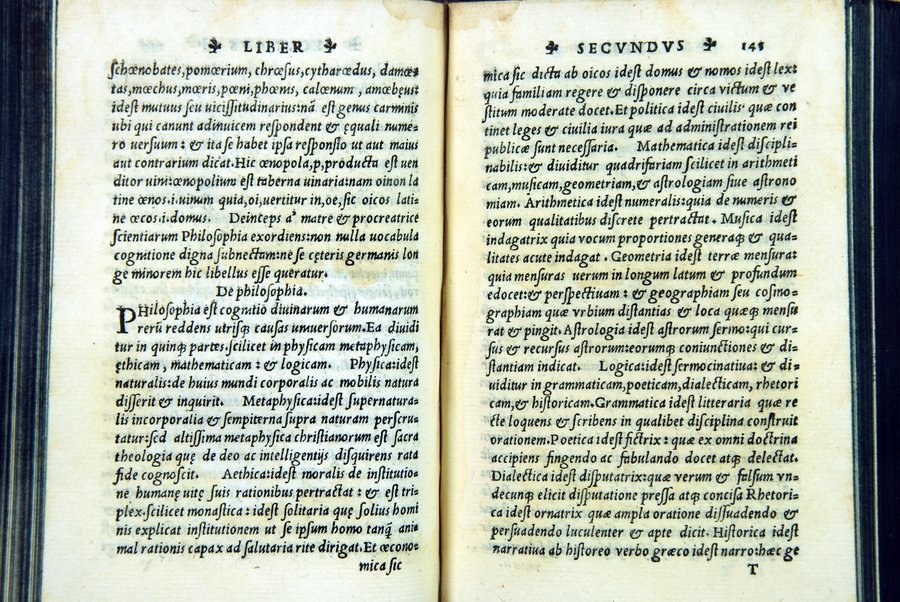 ❧ LIBER ❧
ſchœnobates, pomœrium, chrœſus, cytharœdus, damœ⸗
tas, mœchus, mœris, pœni, phœnis, calœnum , amœbęus:
ideſt mutuus ſeu uiciſſitudinarius: nã eſt genus carminis
ubi qui canunt adinuicem reſpondent & ęquali nume⸗
ro uerſuum : & ita ſe habet ipſa reſponſio ut aut maius
aut contrarium dicat. Hic œnopola, p, producta eſt uen
ditor uini: œnopolium eſt taberna uinaria: nam oinon la
tine œnos .i. uinum quia, oi, uertitur in, oe, ſic oicos lati⸗
ne œcos .i. domus. Deinceps a matre & procreatrice
ſcientiarum Philoſophia exordiens: non nulla uocabula
cognitione digna ſubnectam: ne ſe cęteris germanis lon
ge minorem hic libellus eſſe queratur.
De philoſophia.
PHiloſophia eſt cognitio diuinarum & humanarum
rerũ reddens utriſq; cauſas uniuerſorum. Ea diuidi
tur in quinq; partes. ſcilicet in phyſicam metaphyſicam,
ęthicam , mathematicam : & logicam. Phyſica: ideſt
naturalis: de huius mundi corporalis ac mobilis natura
diſſerit & inquirit. Metaphyſica: ideſt ſupernatura⸗
lis incorporalia & ſempiterna ſupra naturam perſcru⸗
tatur: ſed altiſſima metaphyſica chriſtianorum eſt ſacra
theologia quę de deo ac intelligentijs diſquirens rata
fide cognoſcit. Aethica: ideſt moralis de inſtitutio⸗
ne humanę uitę ſuis rationibus pertractat : & eſt tri⸗
plex. ſcilicet monaſtica : ideſt ſolitaria quę ſolius homi
nis explicat inſtitutionem ut ſe ipſum homo tanq̃ ani⸗
mal rationis capax ad ſalutaria rite dirigat. Et œcono⸗
mica ſic
❧ SECVNDVS ❧ 145
mica ſic dicta ab oicos ideſt domus & nomos ideſt lex:
quia familiam regere & diſponere circa victum & ve
ſtitum moderate docet. Et politica ideſt ciuilis quæ con
tinet leges & ciuilia iura quæ ad adminiſtrationem rei
publicæ ſunt neceſſaria. Mathematica ideſt diſcipli⸗
nabilis: & diuiditur quadrifariam ſcilicet in arithmeti
cam, muſicam, geometriam, & aſtrologiam ſiue aſtrono
miam. Arithmetica ideſt numeralis: quia de numeris &
eorum qualitatibus diſcrete pertractat. Muſica ideſt
indagatrix quia vocum proportiones generaq; & qua⸗
litates acute indagat . Geometria ideſt terræ menſura:
quia menſuras uerum in longum latum & profundum
edocet: & perſpectiuam : & geographiam ſeu coſmo⸗
graphiam quæ vrbium diſtantias & loca quæq; menſu
rat & pingit. Aſtrologia ideſt aſtrorum ſermo: qui cur⸗
ſus & recurſus aſtrorum: eorumq; coniunctiones & di⸗
ſtantiam indicat. Logica: ideſt ſermocinatiua: & di⸗
uiditur in grammaticam, poeticam, dialecticam, rhetori
cam, & hiſtoricam. Grammatica ideſt litteraria quæ re
cte loquens & ſcribens in qualibet diſciplina conſtruit
orationem. Poetica ideſt fictrix : quæ ex omni doctrina
accipiens fingendo ac fabulando docet atq; delectat.
Dialectica ideſt diſputatrix: quæ verum & falſum vn⸗
decunq; elicit diſputatione preſſa atq; conciſa Rhetori⸗
ca ideſt ornatrix quæ ampla oratione diſſuadendo &
perſuadendo luculenter & apte dicit. Hiſtorica ideſt
narratiua ab hiſtoreo verbo græco ideſt narro: hæc ge
T